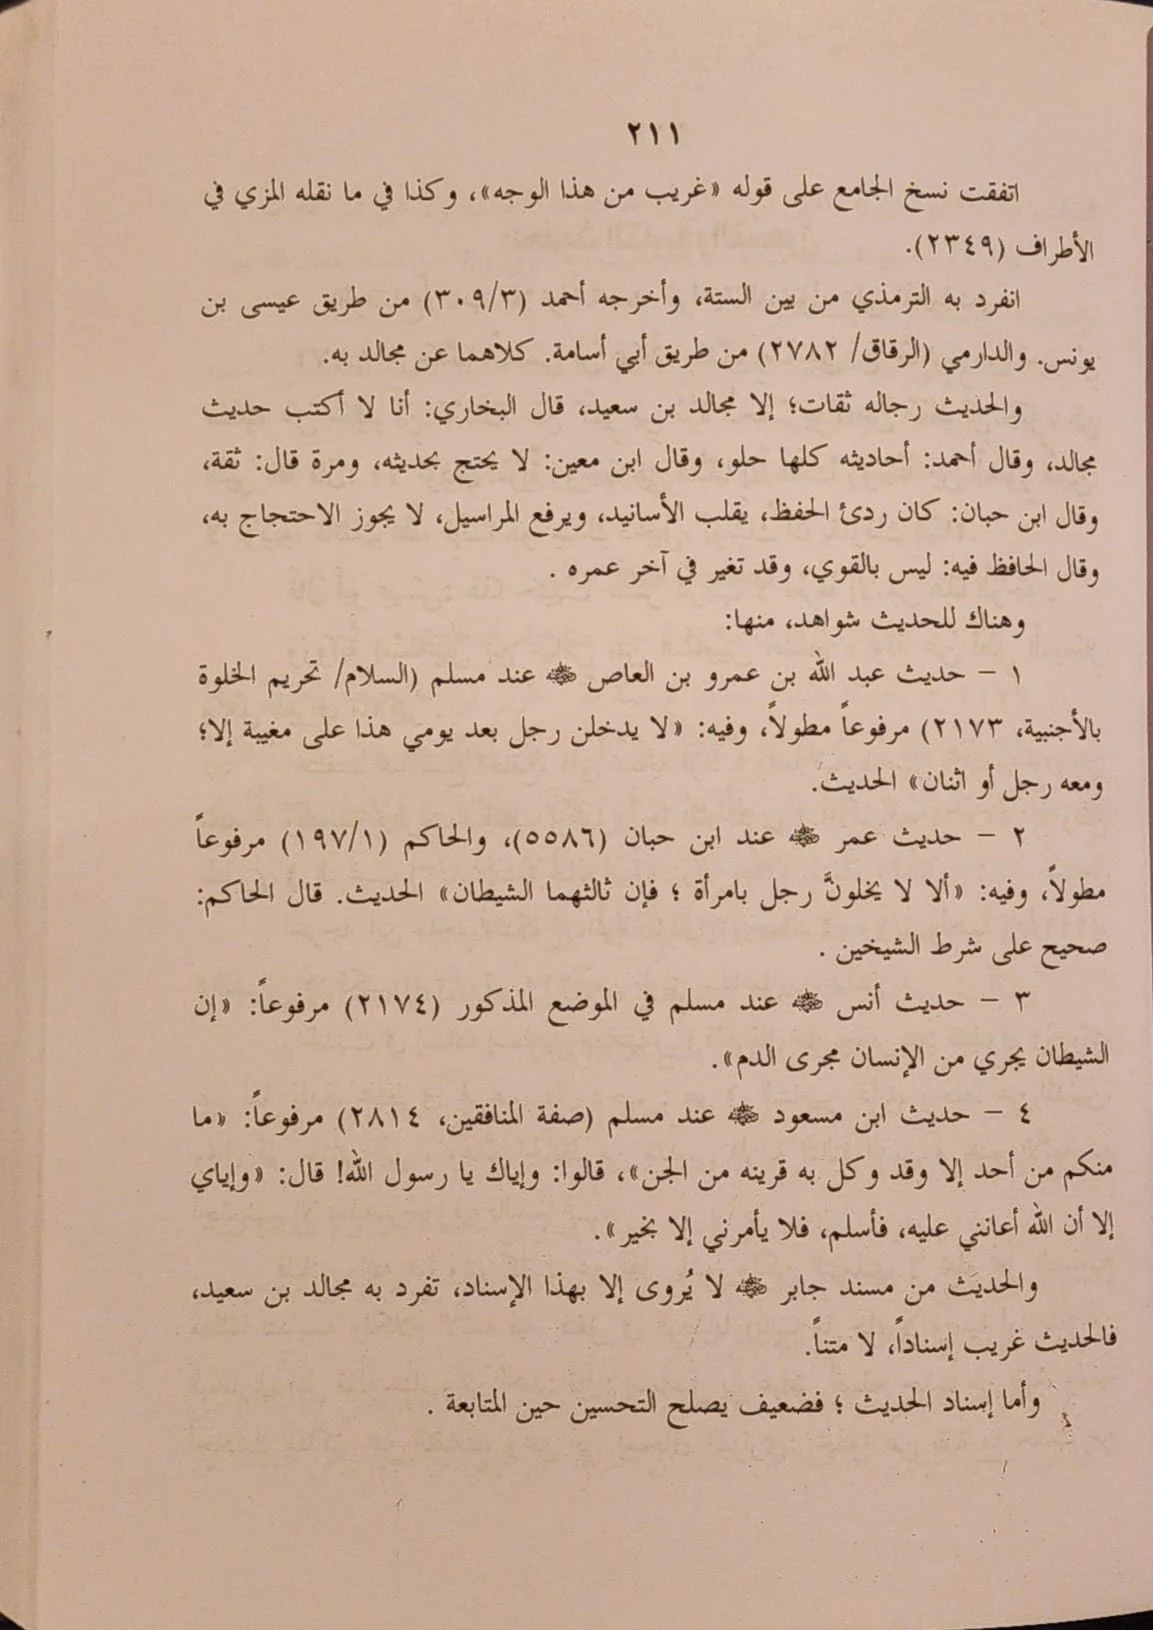 ٢١١
اتفقت نسخ الجامع على قوله «غريب من هذا الوجه»، وكذا في ما نقله المزي في
الأطراف (٢٣٤٩).
انفرد به الترمذي من بين الستة، وأخرجه أحمد (٣٠٩/٣) من طريق عيسى بن
يونس. والدارمي (الرقاق/ ٢٧٨٢) من طريق أبي أسامة. كلاهما عن مجالد به.
والحديث رجاله ثقات؛ إلا مجالد بن سعيد، قال البخاري: أنا لا أكتب حديث
مجالد، وقال أحمد: أحاديثه كلها حلو، وقال ابن معين: لا يحتج بحديثه، ومرة قال: ثقة،
وقال ابن حبان: كان ردئ الحفظ، يقلب الأسانيد، ويرفع المراسيل، لا يجوز الاحتجاج به،
وقال الحافظ فيه: ليس بالقوي، وقد تغير في آخر عمره .
وهناك للحديث شواهد، منها:
١ - حديث عبد الله بن عمرو بن العاص ﷺ عند مسلم (السلام/ تحريم الخلوة
بالأجنبية، ٢١٧٣) مرفوعاً مطولاً، وفيه: «لا يدخلن رجل بعد يومي هذا على مغيبة إلا؛
ومعه رجل أو اثنان» الحديث.
٢ - حديث عمر ﷺ عند ابن حبان (٥٥٨٦)، والحاكم (١٩٧/١) مرفوعاً
مطولاً، وفيه: «ألا لا يخلونَّ رجل بامرأة ؛ فإن ثالثهما الشيطان» الحديث. قال الحاكم:
صحيح على شرط الشيخين .
٣ - حديث أنس ﷺ عند مسلم في الموضع المذكور (٢١٧٤) مرفوعاً: «إن
الشيطان يجري من الإنسان مجرى الدم».
٤ - حديث ابن مسعود ﷺ عند مسلم (صفة المنافقين، ٢٨١٤) مرفوعاً: «ما
منكم من أحد إلا وقد وكل به قرينه من الجن»، قالوا: وإياك يا رسول الله! قال: «وإياي
إلا أن الله أعانني عليه، فأسلم، فلا يأمرني إلا بخير».
والحديث من مسند جابر ﷺ لا يُروى إلا بهذا الإسناد، تفرد به مجالد بن سعيد،
فالحديث غريب إسناداً، لا متناً.
وأما إسناد الحديث ؛ فضعيف يصلح التحسين حين المتابعة .